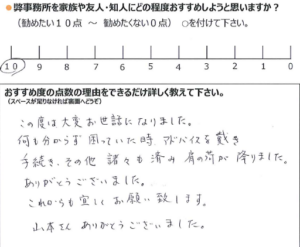 ●弊事務所を家族や友人・知人にどの程度おすすめしようと思いますか?
(勧めたい10点 ～ 勧めたくない0点) ○を付けて下さい。
10 9 8 7 6 5 4 3 2 1 0
おすすめ度の点数の理由をできるだけ詳しく教えて下さい。
(スペースが足りなければ裏面へどうぞ)
この度は大変お世話になりました。
何も分からず 困っていた時、アドバイスを戴き
手続き、その他 諸々も済み 肩の荷が 降りました。
ありがとうございました。
これからも宜しくお願い致します。
山本さん ありがとうございました。